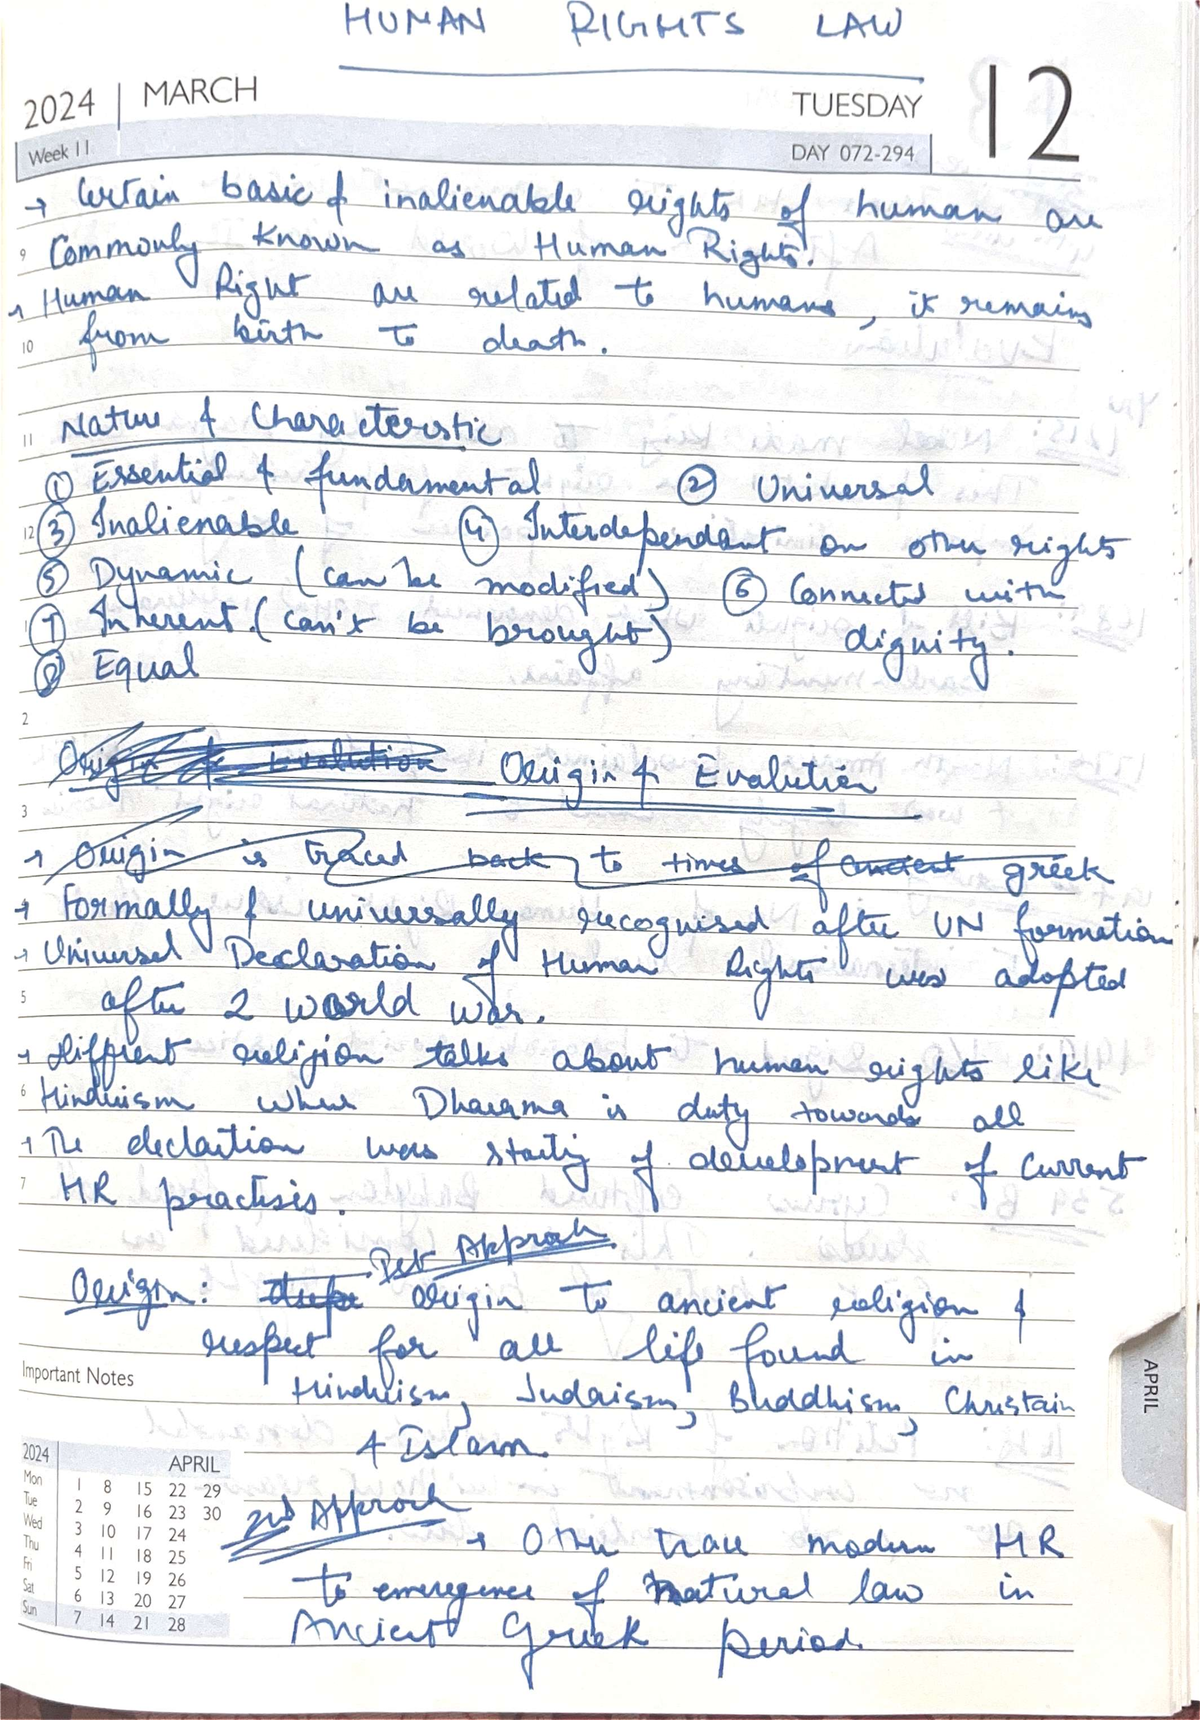 HUMAN RIGHTS LAW
2024 | MARCH TUESDAY 12
Week 11 DAY 072-294
→ Certain basic & inalienable rights of human are
9 Commonly known as Human Rights.
→ Human Right are related to humans, it remains
10 from birth to death.
11 Nature & Characteristic
① Essential & fundamental ② Universal
12 ③ Inalienable ④ Interdependant on other rights
⑤ Dynamic (can be modified) ⑥ Connected with
1 ⑦ Inherent. (can't be brought) dignity.
⑧ Equal
2
Origin & Evalution Origin & Evalution
3
→ Origin is traced back to times of ancient greek
→ Formally & universally recognised after UN formation
→ Universal Declaration of Human Rights was adopted
5 after 2 world war.
→ diffrent religion talks about human rights like
6 Hinduism where Dharama is duty towards all
→ The declartion was startig of development of current
7 HR practisis.
Ist Approah
Origin: origin to ancient religion &
respect for all life found in
Important Notes
Hinduism, Judaism, Buddhism, Christain
& Islam.
2024 APRIL
Mon 1 8 15 22 29
Tue 2 9 16 23 30
Wed 3 10 17 24
Thu 4 11 18 25
Fri 5 12 19 26
Sat 6 13 20 27
Sun 7 14 21 28
2nd Approch
→ Other trace modern HR
to emergence of natural law in
Ancient Greek period.
APRIL